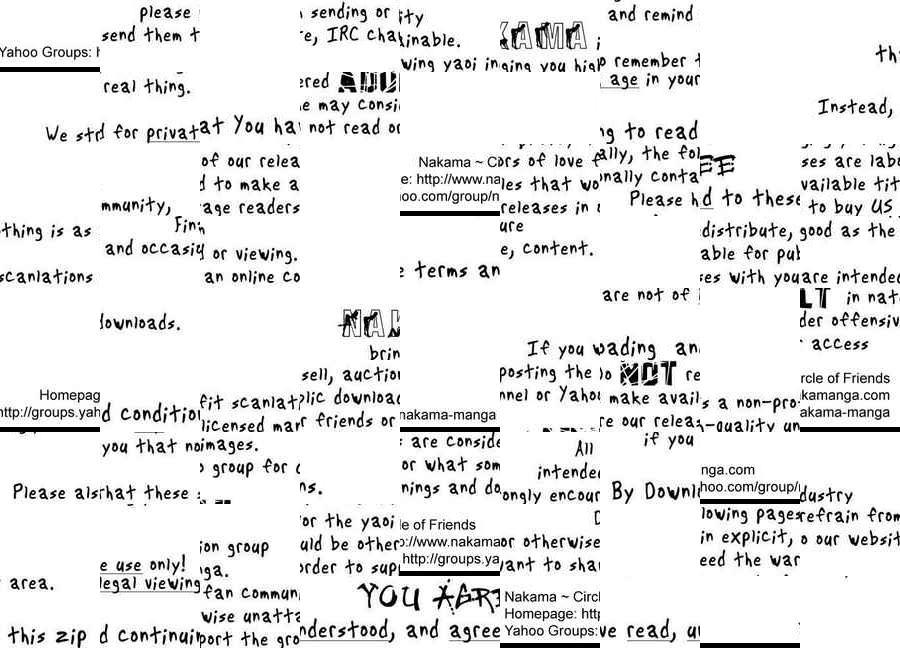 please sending or ity and remind
send them t re, IRC chat inable. KAMA
Yahoo Groups: th
wing yaoi in ging you high remember
real thing. ered ADU age in your
e may consi Instead,
We sta d for privat at You ha not read or ng to read
of our relea Nakama ~ C ors of love ally, the fol EE ses are labe
d to make a e: http://www.na les that wo onally conta vailable tit
mmunity, age readers oo.com/group/n releases in Please h d to these to buy US
thing is as Fin ure distribute, good as the
and occasi or viewing. e, content. able for pub
scanlations an online co e terms an ses with you are intended
are not of LT in nat
downloads. NAK der offensiv
brin If you ading an access
sell, auction posting the o NOT re rcle of Friends
Homepag nel or Yahoo make avail kamanga.com
http://groups.yah d condition fit scanlat lic download nakama-manga s a non-pro akama-manga
licensed man r friends or re our relea -quality un
you that no images. are conside All if you
group for or what som intended nga.com
Please als that these ns. nings and do ongly encour By Downl hoo.com/group/ dustry
or the yaoi le of Friends D lowing pages refrain from
ion group uld be other p://www.nakama or otherwise in explicit, o our websit
e use only! nga. order to sup http://groups.ya want to shar eed the war
area. legal viewing fan commun YOU AGRE Nakama ~ Circl
wise unatta Homepage: http
this zip d continuin port the gro nderstood, and agree Yahoo Groups: ve read, u